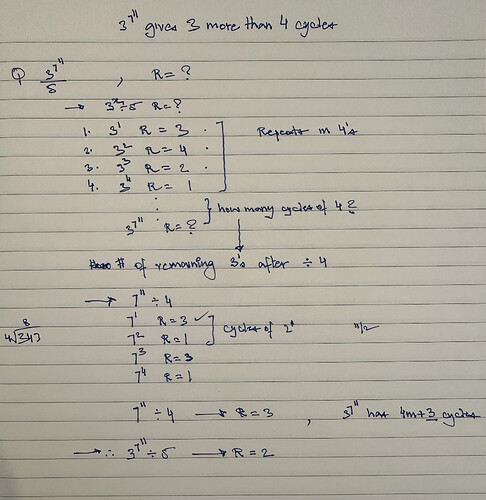 3^7^11 gives 3 more than 4 cycles
Q 3^7^11/5 , R = ?
→ 3^x÷5 R = ?
1. 3^1 R = 3 .
2. 3^2 R = 4 . Repeats in 4's
3. 3^3 R = 2 .
4. 3^4 R = 1
⋮ how many cycles of 4?
3^7^11 R = ?
# of remaining 3's after ÷ 4
→ 7^11 ÷ 4
8
4√343 7^1 R = 3 ✓
7^2 R = 1 cycles of 2 11/2
7^3 R = 3
7^4 R = 1
7^11 ÷ 4 → R = 3 , 3^7^11 has 4m+3 cycles
→ ∴ 3^7^11 ÷ 5 → R = 2